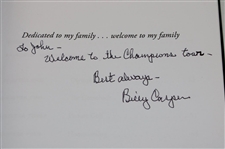 Dedicated to my family . . . welcome to my family
To John –
Welcome to the Champions tour –
Best always –
Billy Casper